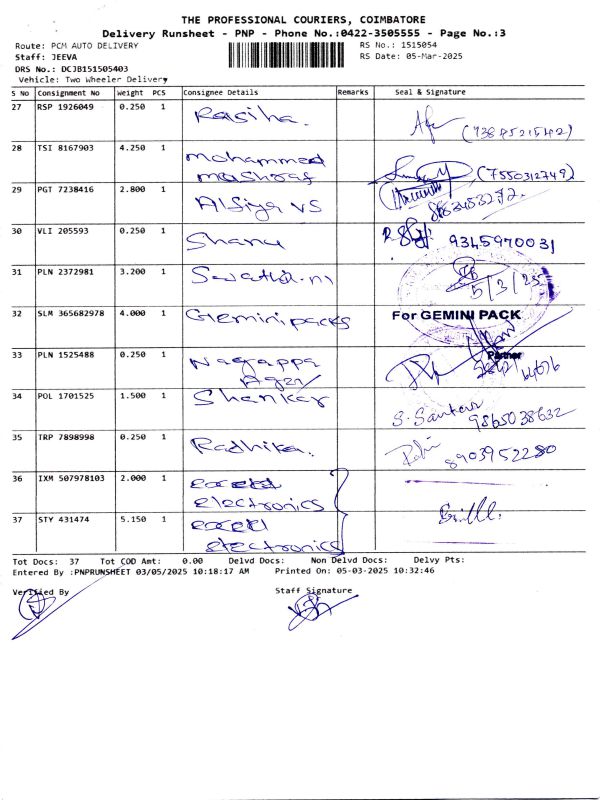 THE PROFESSIONAL COURIERS, COIMBATORE
Delivery Runsheet - PNP - Phone No.:0422-3505555 - Page No.:3
Route: PCM AUTO DELIVERY
RS No.: 1515054
Staff: JEEVA
RS Date: 05-Mar-2025
DRS No.: DCJB151505403
Vehicle: Two Wheeler Delivery
S No Consignment No Weight PCS Consignee Details Remarks Seal & Signature
27 RSP 1926049 0.250 1 Rasiha.
28 TSI 8167903 4.250 1 mohammed (7550312749)
mashraf
29 PGT 7238416 2.800 1 Alsiya VS
30 VLI 205593 0.250 1 Shanu 9345970031
31 PLN 2372981 3.200 1 Swathi.m 5/3/25
32 SLM 365682978 4.000 1 Gemini packs For GEMINI PACK
Partner
33 PLN 1525488 0.250 1 Nagappa
34 POL 1701525 1.500 1 Shankar 9865038632
35 TRP 7898998 0.250 1 Radhika. 8903952280
36 IXM 507978103 2.000 1 excell
electronics
37 STY 431474 5.150 1 excell
electronics
Tot Docs: 37 Tot COD Amt: 0.00 Delvd Docs: Non Delvd Docs: Delvy Pts:
Entered By :PNPRUNSHEET 03/05/2025 10:18:17 AM Printed On: 05-03-2025 10:32:46
Verified By Staff Signature